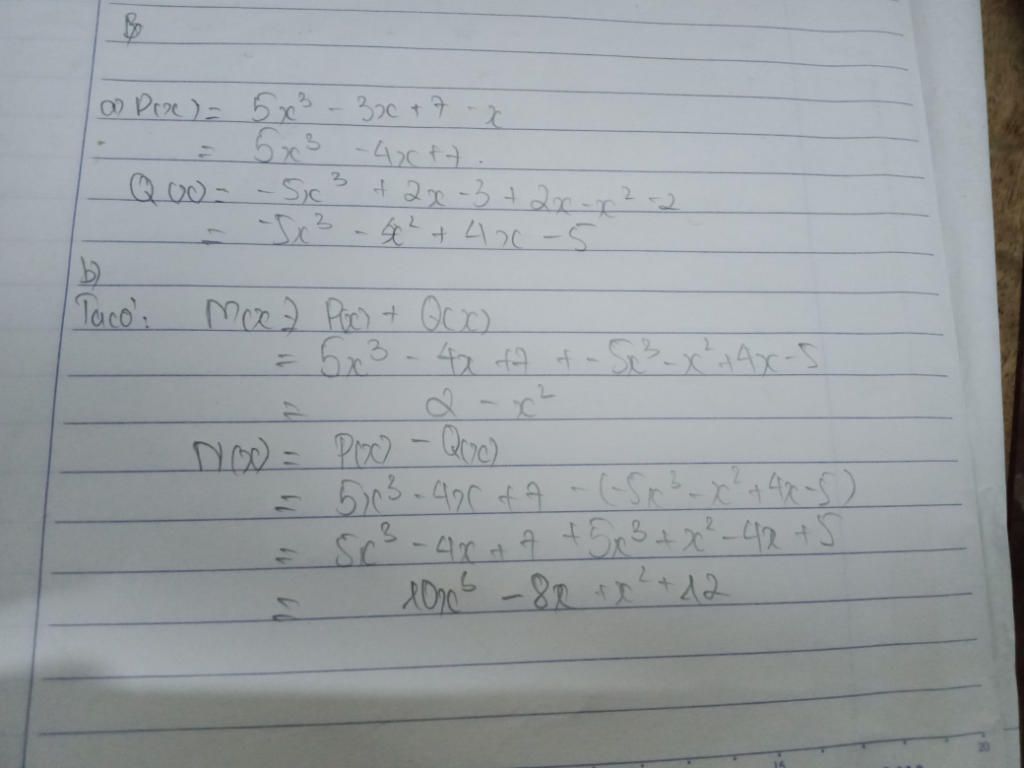 a) P(x) = 5x³ - 3x + 7 - x
= 5x³ - 4x + 7.
Q(x) = -5x³ + 2x - 3 + 2x - x² - 2
= -5x³ - x² + 4x - 5
b)
Ta có: M(x) = P(x) + Q(x)
= 5x³ - 4x + 7 + - 5x³ - x² + 4x - 5
= 2 - x²
N(x) = P(x) - Q(x)
= 5x³ - 4x + 7 - (-5x³ - x² + 4x - 5)
= 5x³ - 4x + 7 + 5x³ + x² - 4x + 5
= 10x³ - 8x + x² + 12
15 20